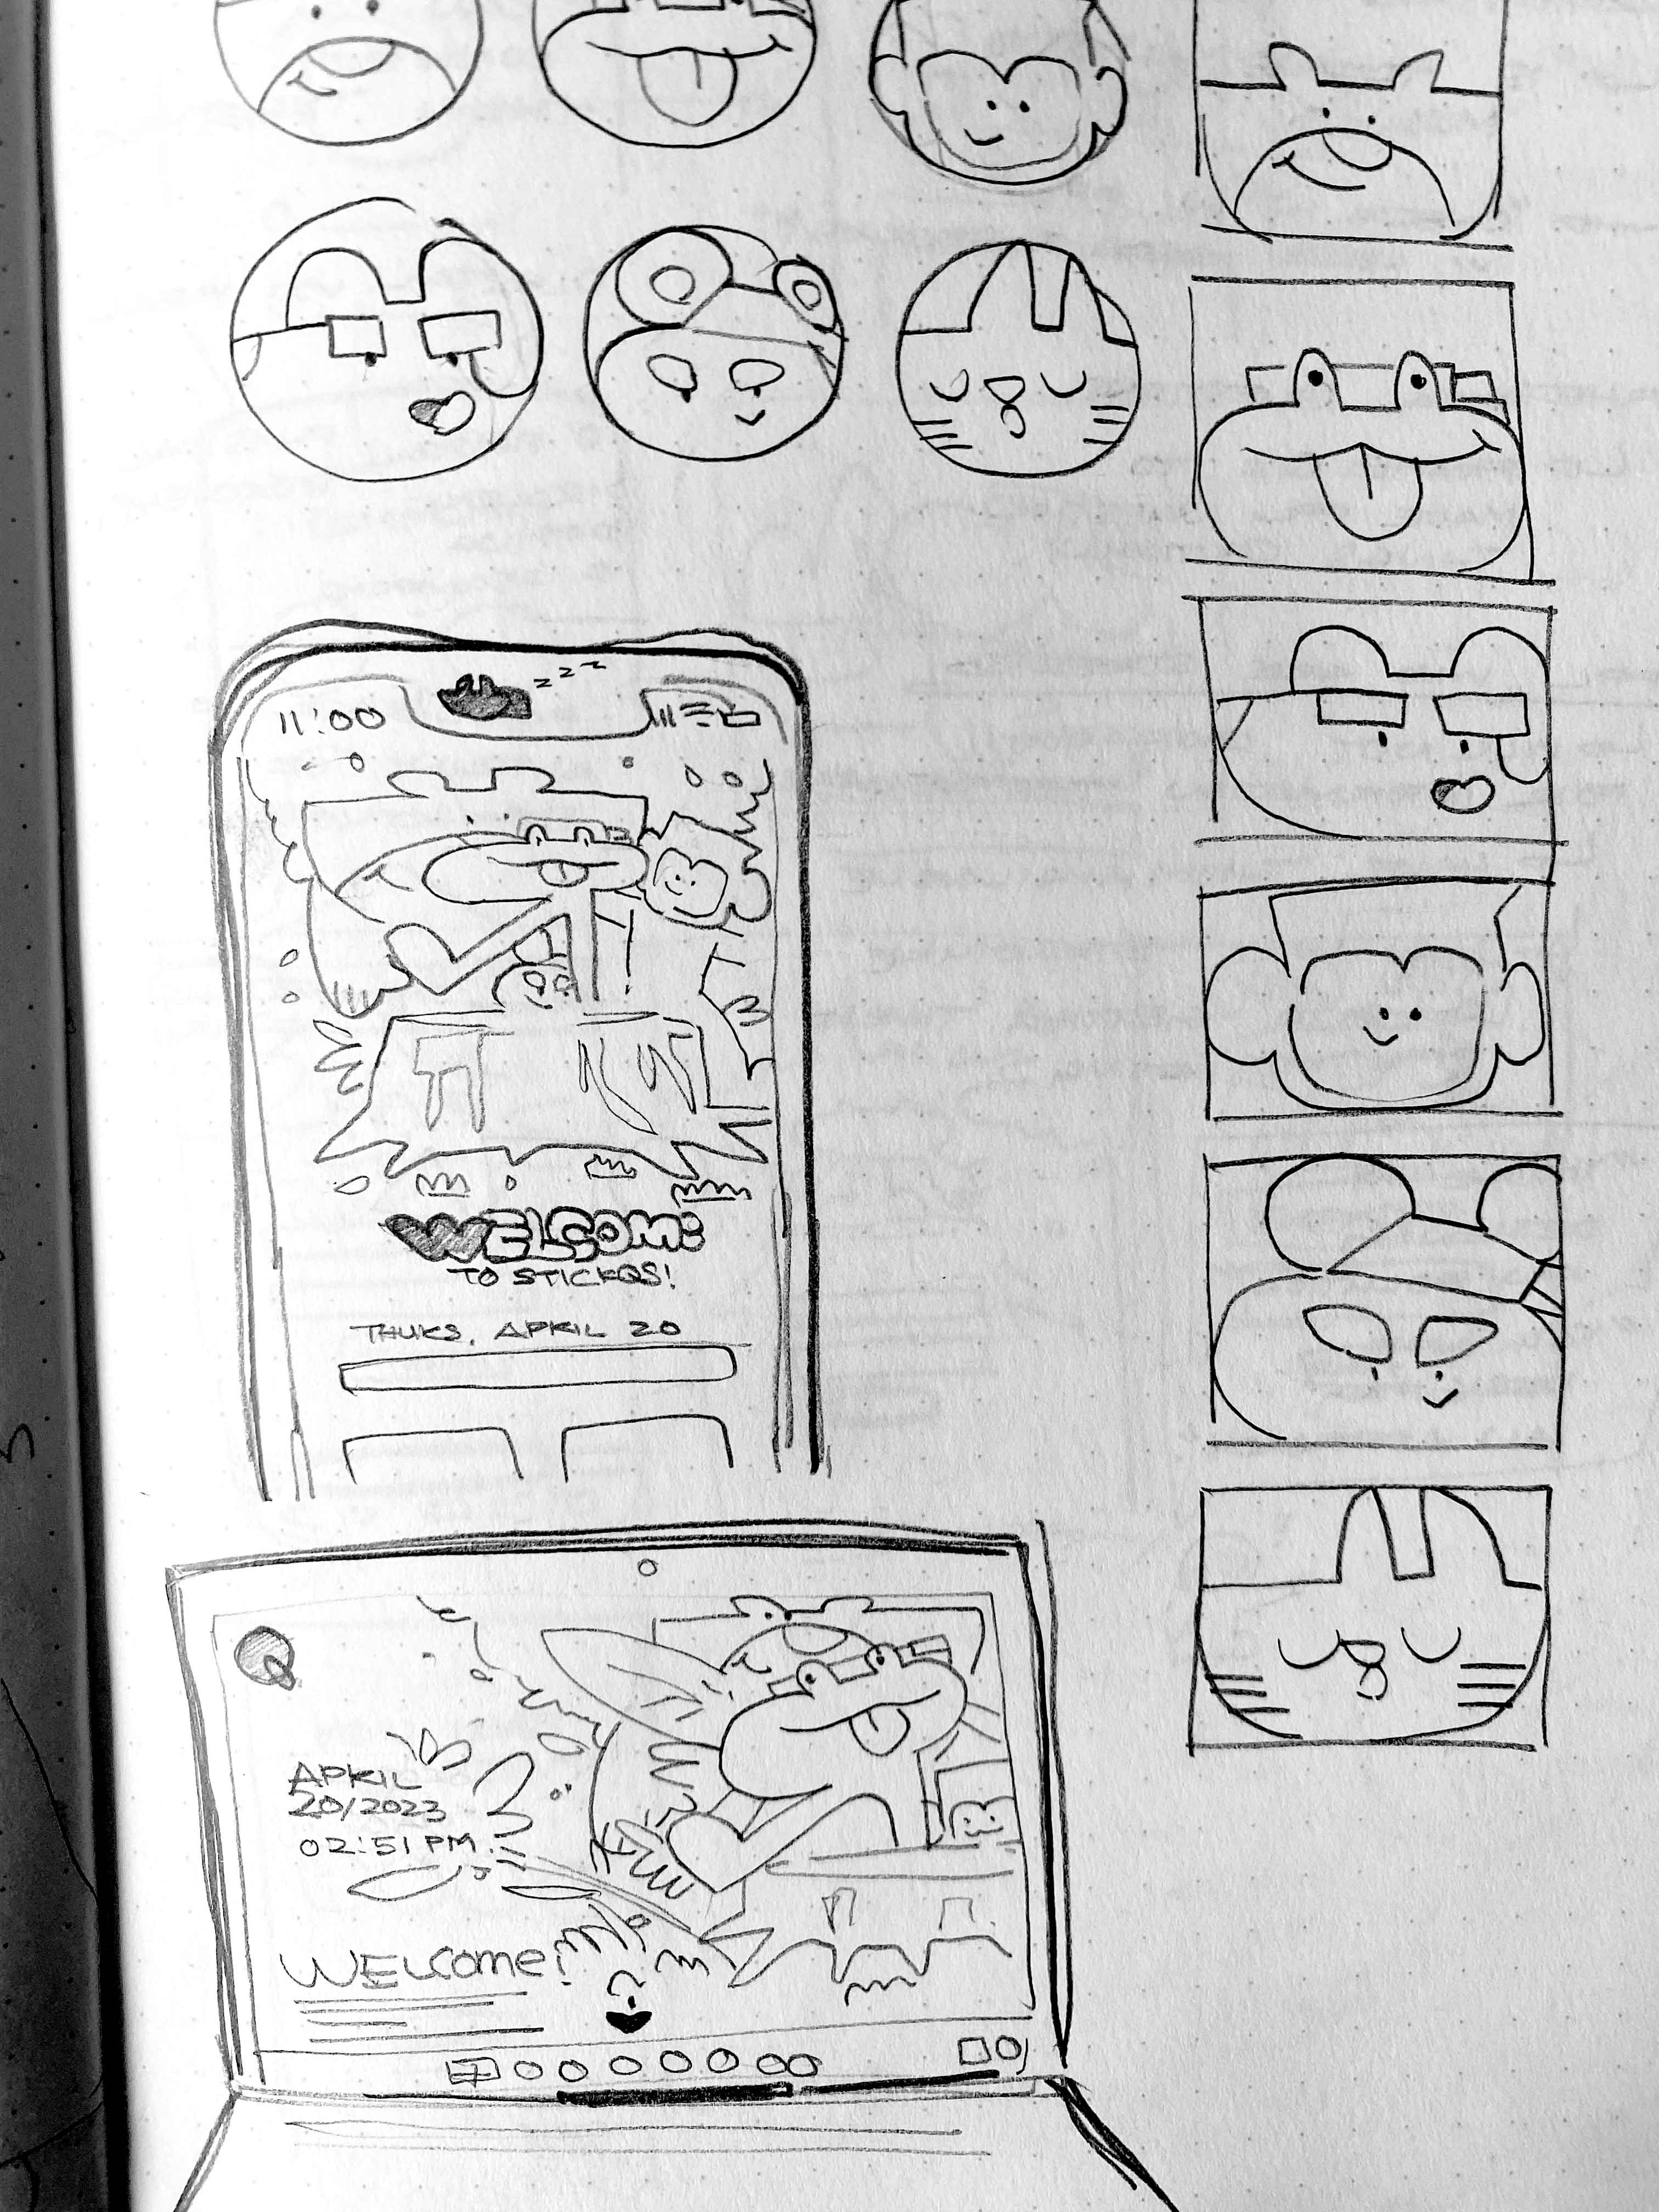 11:00
z z z
WELCOME
TO STICKQS!
THURS, APRIL 20
Q
APRIL
20/2023
02:51 PM
WELCOME!